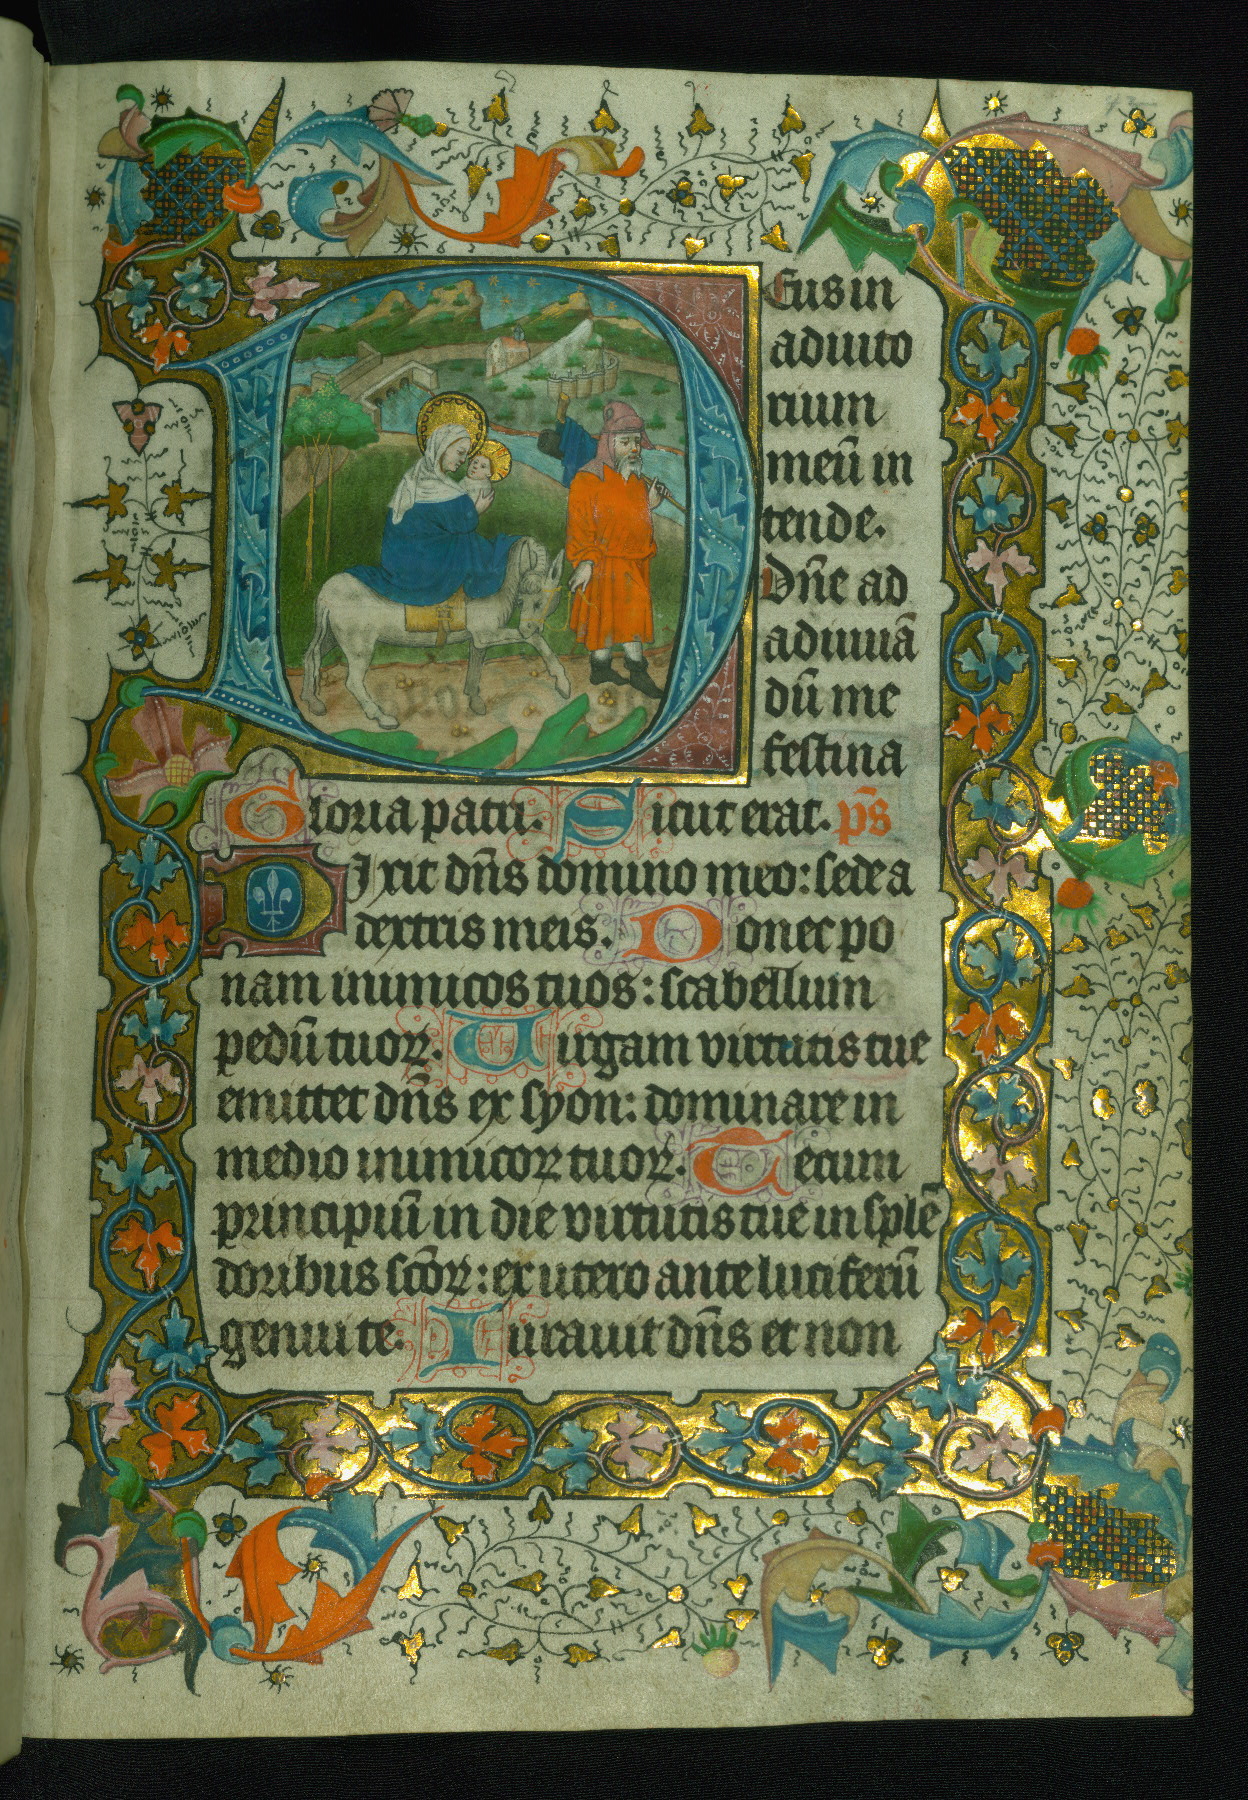 Deus in
adiuto
rium
meū in
tende.
Dn̄e ad
adiuuā
dū me
festina
Gloria patri. Sicut erat. p̄s
Dixit dn̄s domino meo: sede a
dextris meis. Donec po
nam inimicos tuos: scabellum
pedū tuoꝝ. Uirgam virtutis tue
emittet dn̄s ex syon: dominare in
medio inimicoꝝ tuoꝝ. Tecum
principiū in die virtutis tue in splē
doribus sc̄oꝝ: ex utero ante luciferū
genui te. Iurauit dn̄s et non